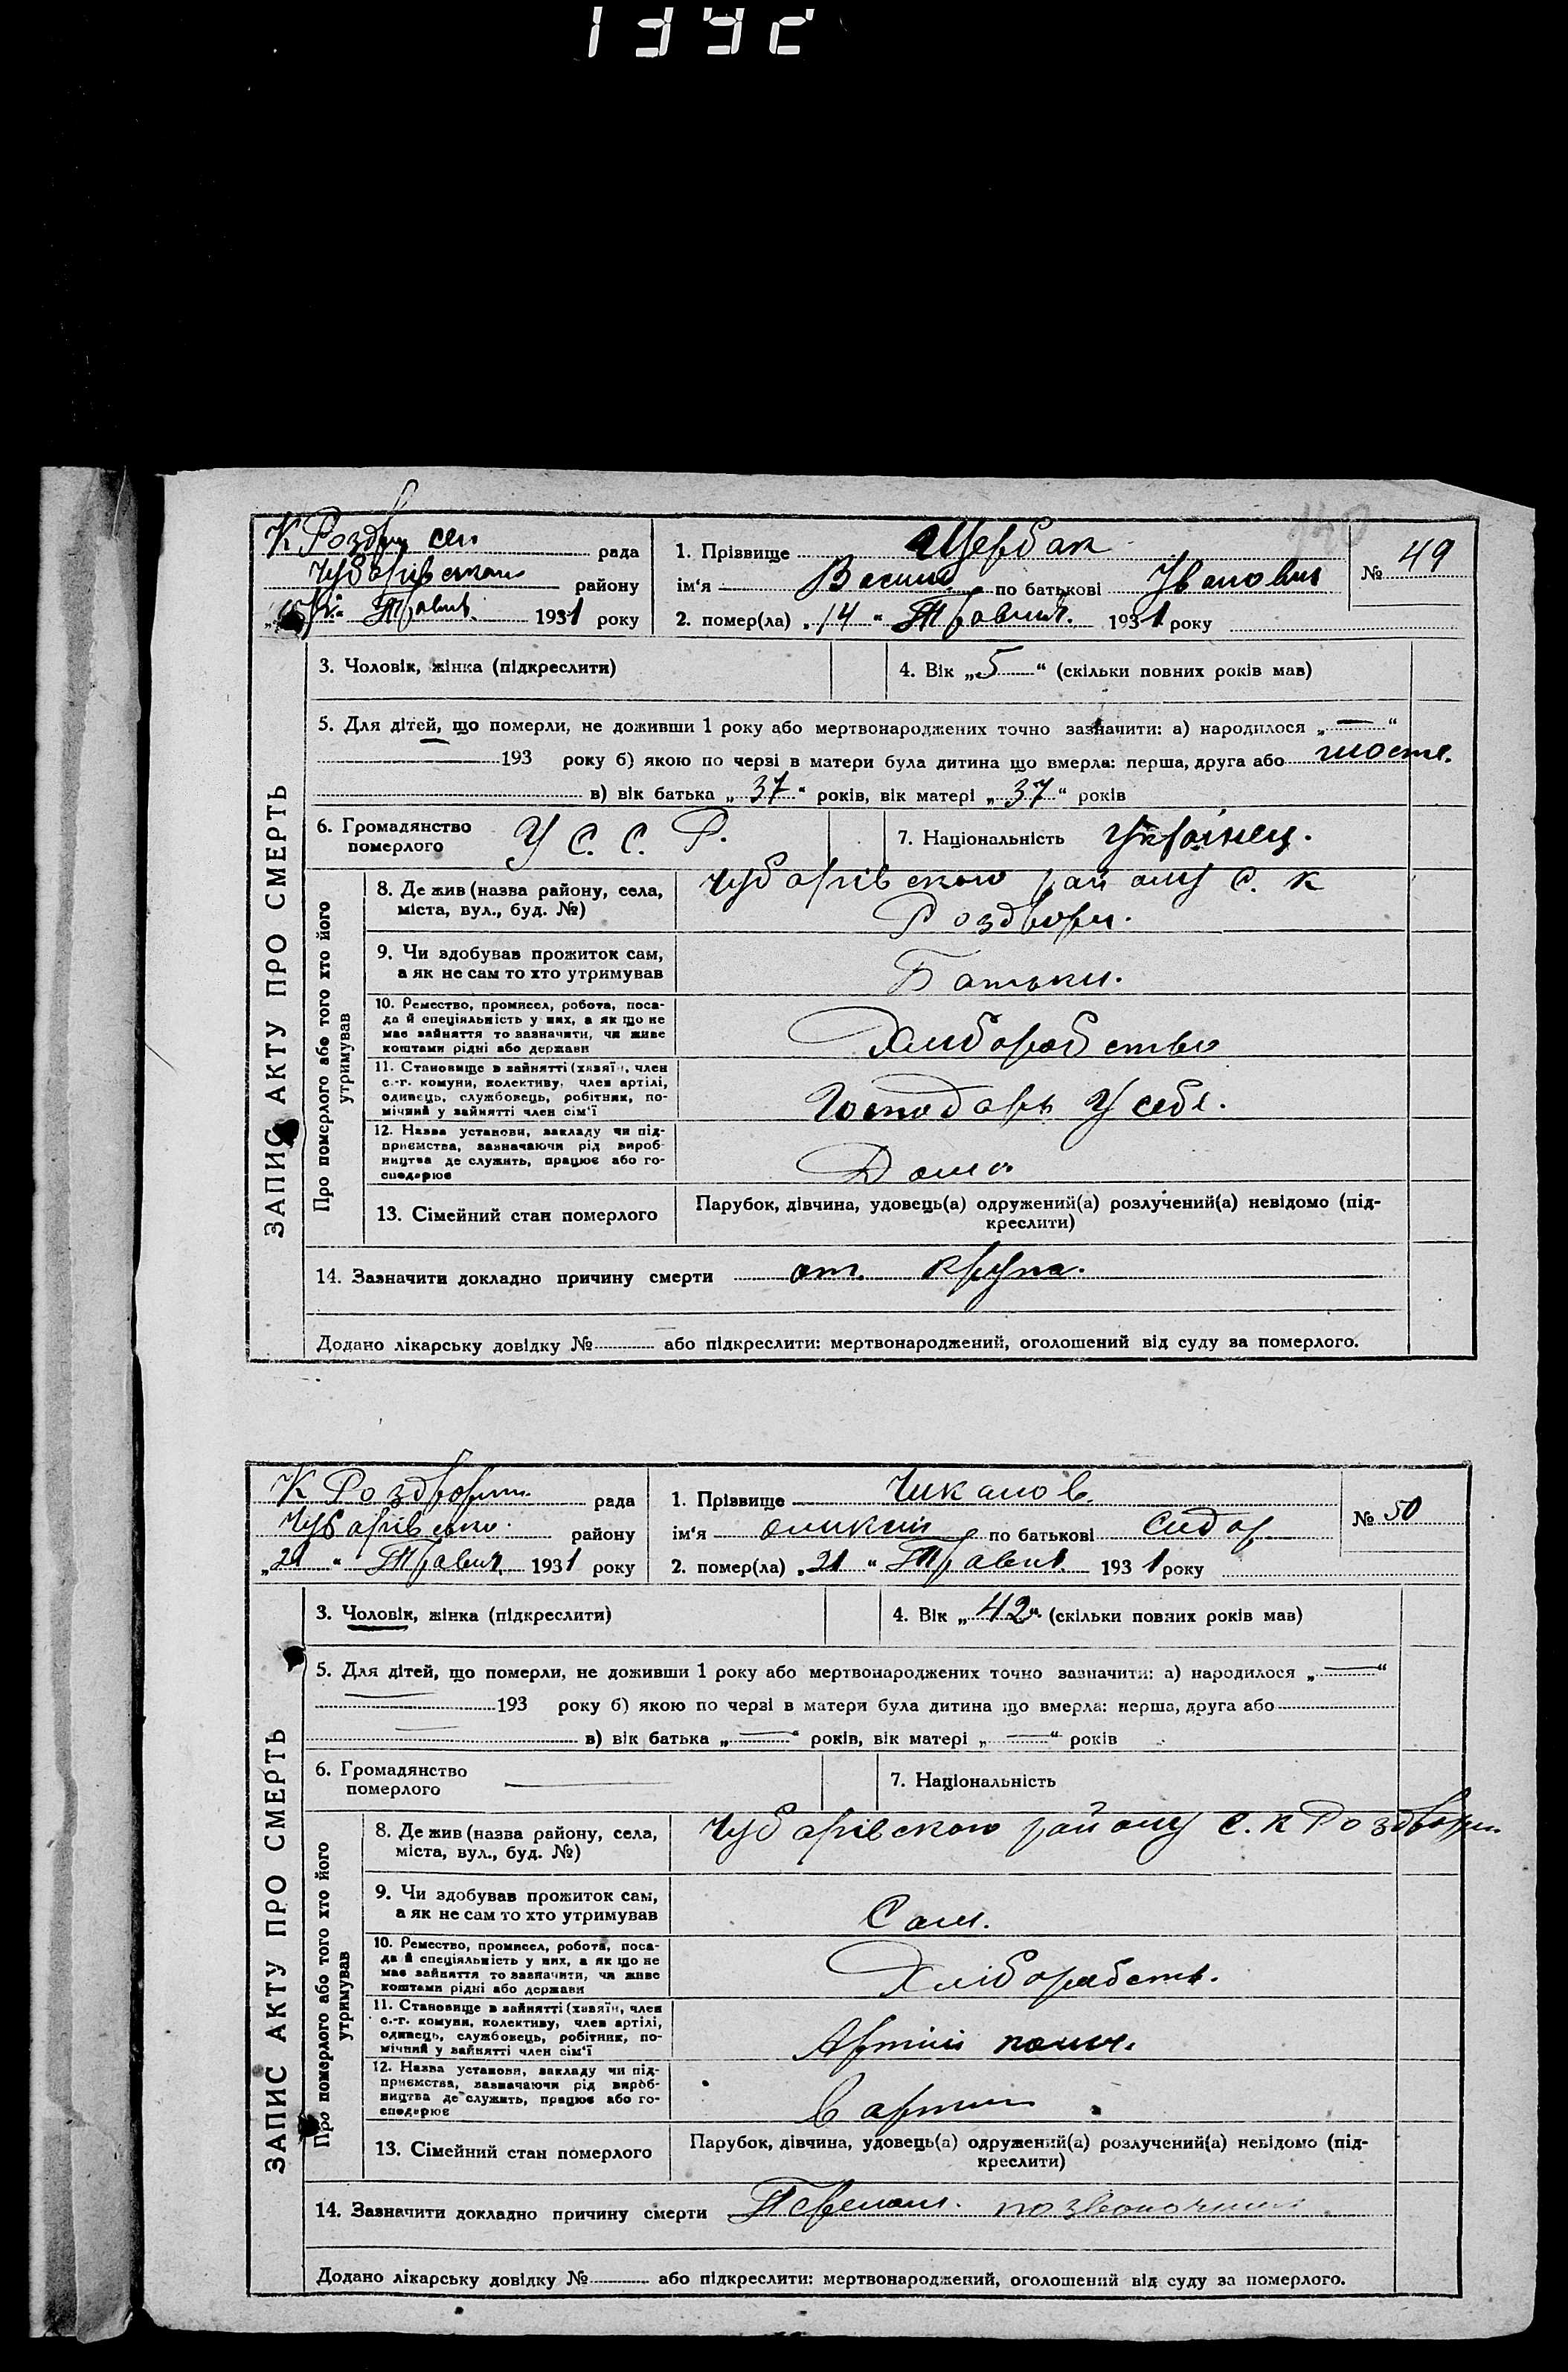 1392
140
К Роздор сел рада
Чубарівського району
Травня 1931 року
1. Прізвище Щербак
ім'я Василь по батькові Іванович
2. помер(ла) „14“ Травня. 1931 року
№ 49
ЗАПИС АКТУ ПРО СМЕРТЬ
3. Чоловік, жінка (підкреслити)
4. Вік „5“ (скільки повних років мав)
5. Для дітей, що померли, не доживши 1 року або мертвонароджених точно зазначити: а) народилося „—“
193 року б) якою по черзі в матери була дитина що вмерла: перша, друга або шосте.
в) вік батька „37“ років, вік матері „37“ років
6. Громадянство
померлого
У С. С. Р.
7. Національність Українец.
Про померлого або того хто його
утримував
8. Де жив (назва району, села,
міста, вул., буд. №)
Чубарівского району С. К
Роздори.
9. Чи здобував прожиток сам,
а як не сам то хто утримував
Батьки.
10. Ремество, промисел, робота, поса-
да й спеціяльність у них, а як що не
має зайняття то зазначити, чи живе
коштами рідні або держави
Хлиборобство
11. Становище в зайнятті (хазяїн, член
с.-г. комуни, колективу, член артілі,
одинець, службовець, робітник, по-
мічний у зайнятті член сім'ї
Господарь У себе.
12. Назва установи, закладу чи під-
приємства, зазначаючи рід вироб-
ництва де служить, працює або го-
сподарює
Дома
13. Сімейний стан померлого
Парубок, дівчина, удовець(а) одружений(а) розлучений(а) невідомо (під-
креслити)
14. Зазначити докладно причину смерти от. крупа.
Додано лікарську довідку № або підкреслити: мертвонароджений, оголошений від суду за померлого.
К Роздорськ. рада
Чубарівсько. району
„21“ Травня. 1931 року
1. Прізвище Чиканов.
ім'я по батькові Сидор
2. помер(ла) „21“ Травня. 1931 року
№ 50
ЗАПИС АКТУ ПРО СМЕРТЬ
3. Чоловік, жінка (підкреслити)
4. Вік „42“ (скільки повних років мав)
5. Для дітей, що померли, не доживши 1 року або мертвонароджених точно зазначити: а) народилося „—“
193 року б) якою по черзі в матери була дитина що вмерла: перша, друга або
в) вік батька „—“ років, вік матері „—“ років
6. Громадянство
померлого
7. Національність
Про померлого або того хто його
утримував
8. Де жив (назва району, села,
міста, вул., буд. №)
Чубарівского району С. К Роздори.
9. Чи здобував прожиток сам,
а як не сам то хто утримував
Сам.
10. Ремество, промисел, робота, поса-
да й спеціяльність у них, а як що не
має зайняття то зазначити, чи живе
коштами рідні або держави
Хлиборобств.
11. Становище в зайнятті (хазяїн, член
с.-г. комуни, колективу, член артілі,
одинець, службовець, робітник, по-
мічний у зайнятті член сім'ї
Артілі
12. Назва установи, закладу чи під-
приємства, зазначаючи рід вироб-
ництва де служить, працює або го-
сподарює
в артили
13. Сімейний стан померлого
Парубок, дівчина, удовець(а) одружений(а) розлучений(а) невідомо (під-
креслити)
14. Зазначити докладно причину смерти Перелом. позвоночника.
Додано лікарську довідку № або підкреслити: мертвонароджений, оголошений від суду за померлого.